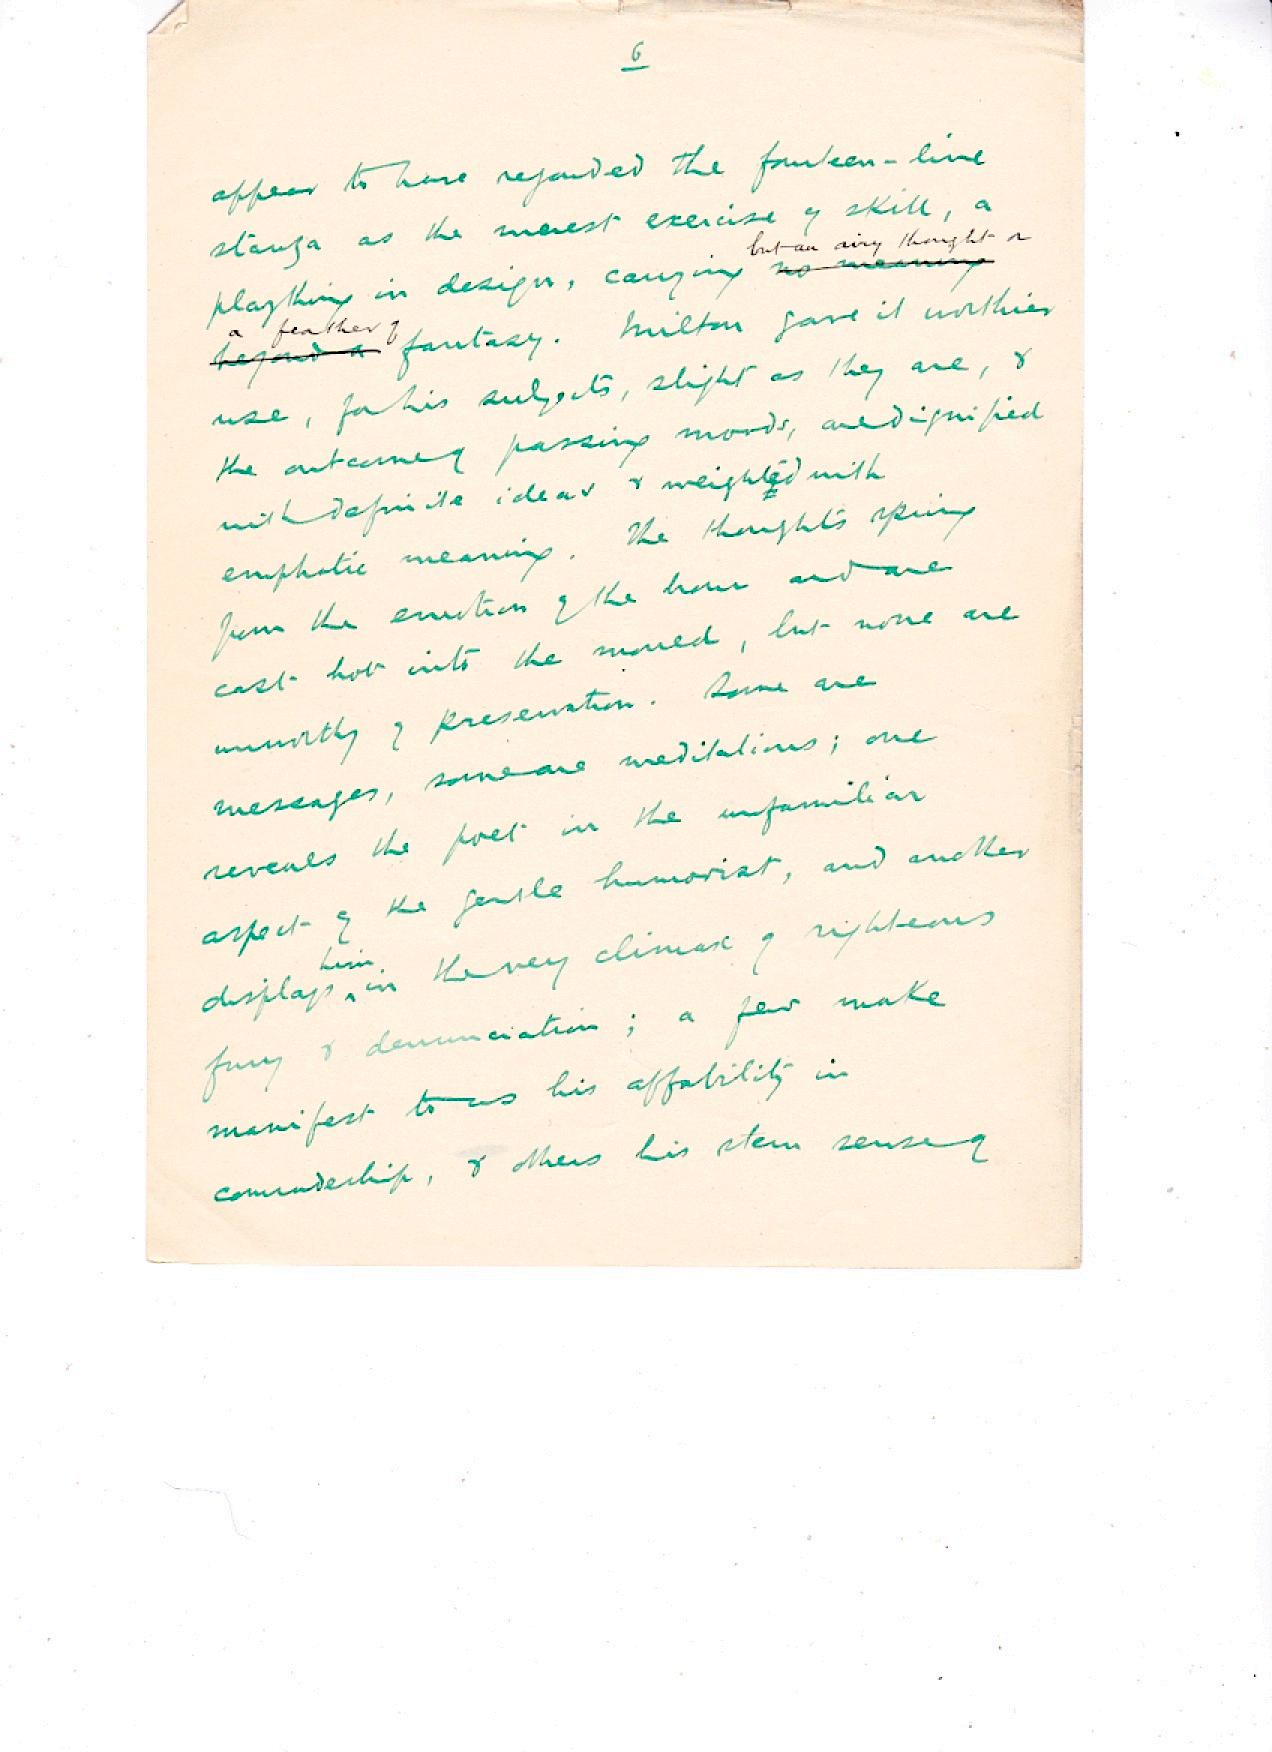 6
appear to have regarded the fourteen-line
stanza as the merest exercise of skill, a
but an airy thought or
plaything in design, carrying no meaning
a feather of
beyond a fantasy. Milton gave it worthier
use, for his subjects, slight as they are, &
the outcome of passing moods, are dignified
with definite ideas & weighted with
emphatic meaning. The thoughts spring
from the emotion of the hour and are
cast hot into the mould, but none are
unworthy of preservation. Some are
messages, some are meditations; one
reveals the poet in the unfamiliar
aspect of the gentle humorist, and another
him
displays in the very climax of righteous
fury & denunciation; a few make
manifest to us his affability in
comradeship, & others his stern sense of